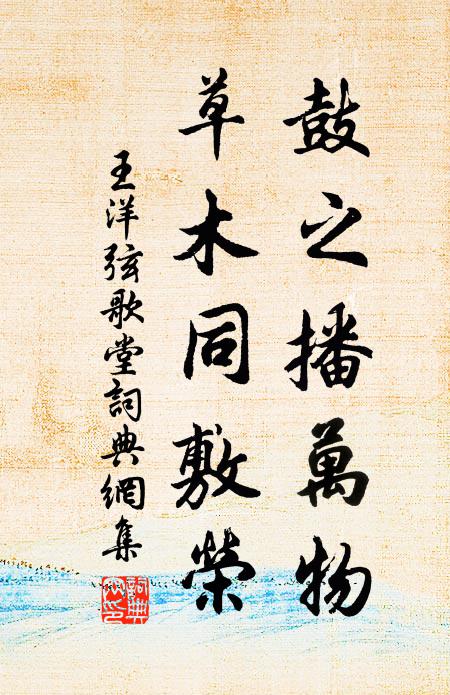 鼓之播萬物
草木同敷榮
王洋弦歌堂詞典網集